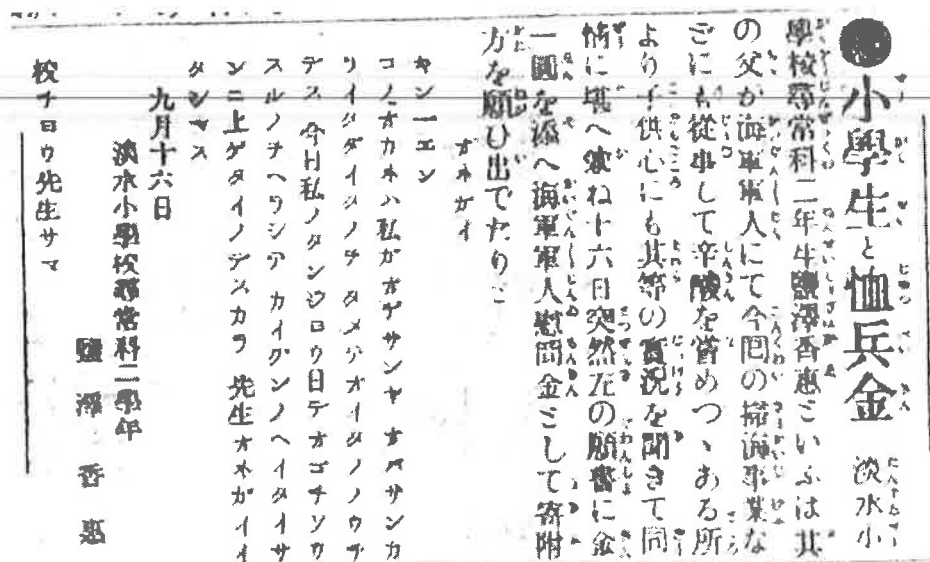 小學生と恤兵金 淡水小
學校尋常科二年生鹽澤香惠といふは其
の父が海軍軍人にて今囘の掃海事業な
どにも從事して辛酸を甞めつゝある所
より子供心にも其等の實況を聞きて同
情に堪へ兼ね十六日突然左の願書に金
一圓を添へ海軍軍人慰問金として寄附
方を願ひ出でたりと
オネガイ
キン一エン
コノオカネハ私ガオヂサンヤ オバサンカ
ライタダイタノヲ タメテオイタノノウチ
デス 今日私ノタンジヨウ日デ オゴチソウ
スルノヲヘラシテ カイグンノヘイタイサ
ンニ上ゲタイノデスカラ 先生オネガイイ
タシマス
九月十六日
淡水小學校尋常科二學年
鹽澤香惠
校チヨウ先生サマ